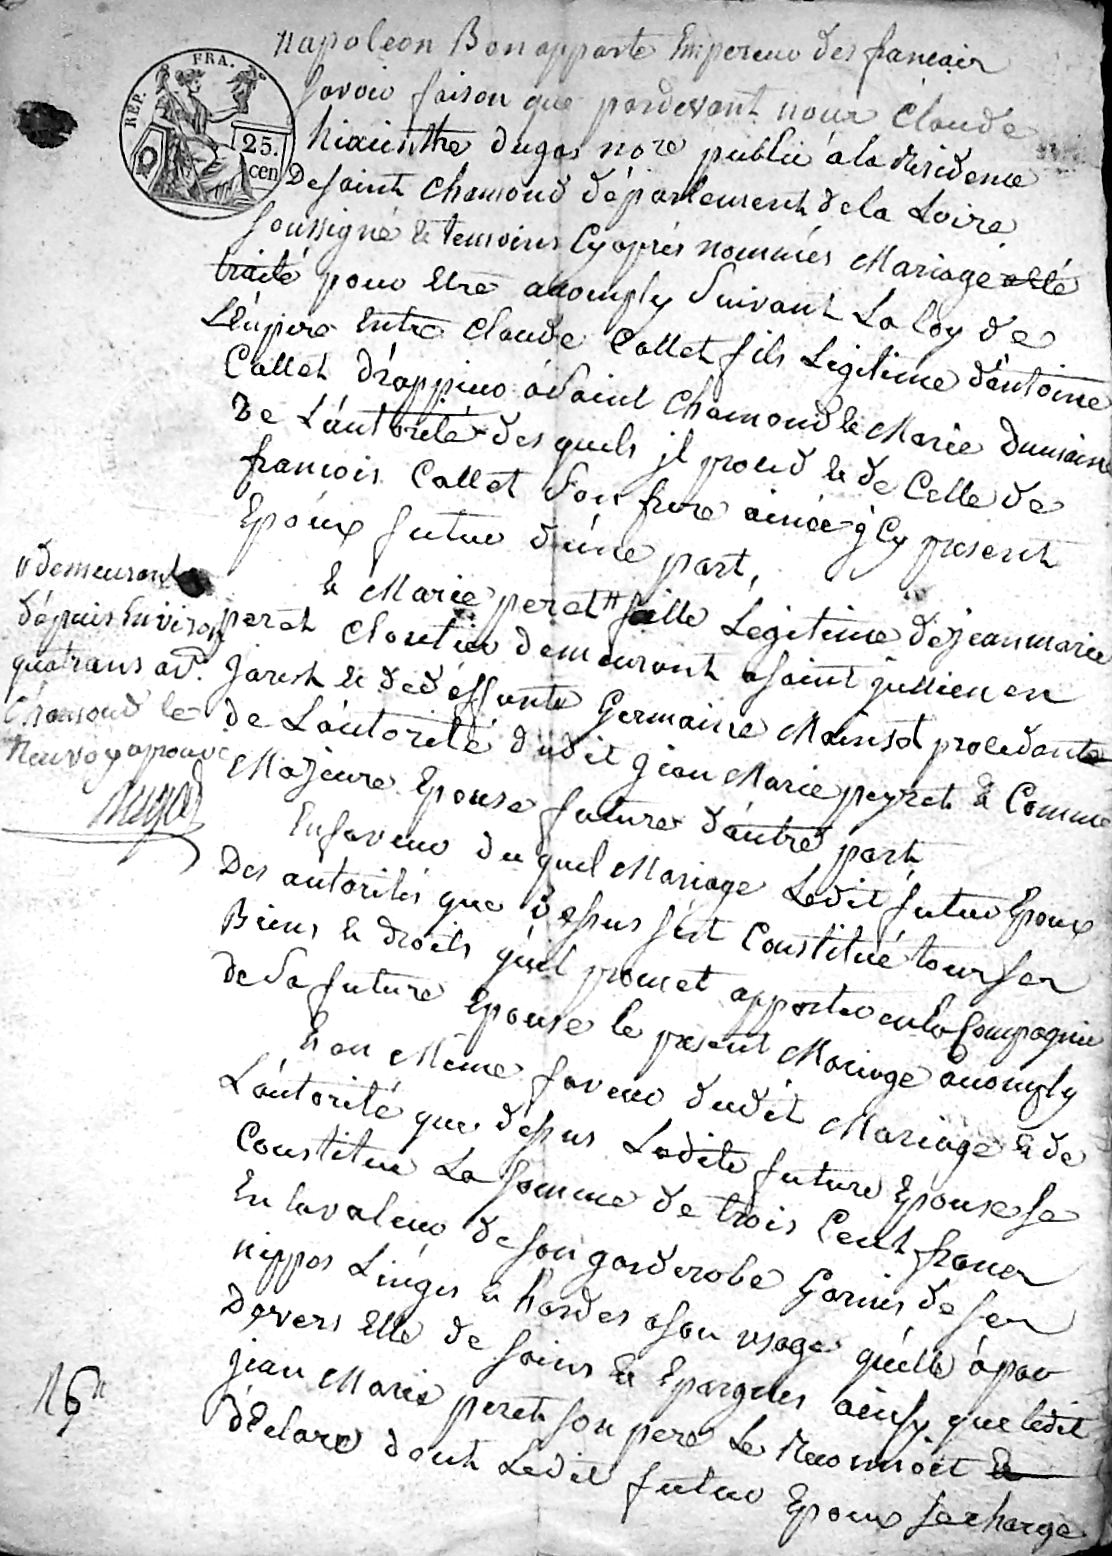 napoleon Bonapparte Empereur des francais
REP. FRA.
25.
cen
Savoir faison que pardevant nous Claude
hiacinthe dugas nore public a la residence
De saint Chamond département de la Loire
soussigné & temoins Cy après nommés Mariage a été
traité pour Etre accomply Suivant La loy de
L'Empire Entre Claude Collet fils Legitime d'antoine
Collet drappier a Saint Chamond & Marie dumaine
De L'autorité des quels il proced & de Celle de
francois Collet Son frere ainée j Cy present
Epoux futur d'une part,
& Marie peret " fille Legitime de jean marie
peret Cloutier demeurant a saint jullien en
Jarest & de deffunte Germaine Mainsot procedante
de L'autorité dudit jean Marie peyret & Comme
Majeure Epouse future d'autre part
" demeurant
depuis Environ
quatr ans a St
Chamond le
renvoy aprouvé
dugas
En faveur du quel Mariage Ledit futur Epoux
Des autorités que dessus s'est Constitué tous ses
Biens & droits qu'il promet apporter en la Compagnie
de Sa future Epouse le present Mariage accomply
En Même faveur dudit Mariage & de
L'autorité que dessus Ladite future Epouse se
Constitue La Somme de trois Cent francs
En la valeur de son garderobe Garnis de ses
nippes Linges & hardes a son usage qu'elle a par
devers Elle de soins & Epargnes ainsy que ledit
jean Marie peret son pere Le reconnoit &
déclare dont Ledit futur Epoux se charge